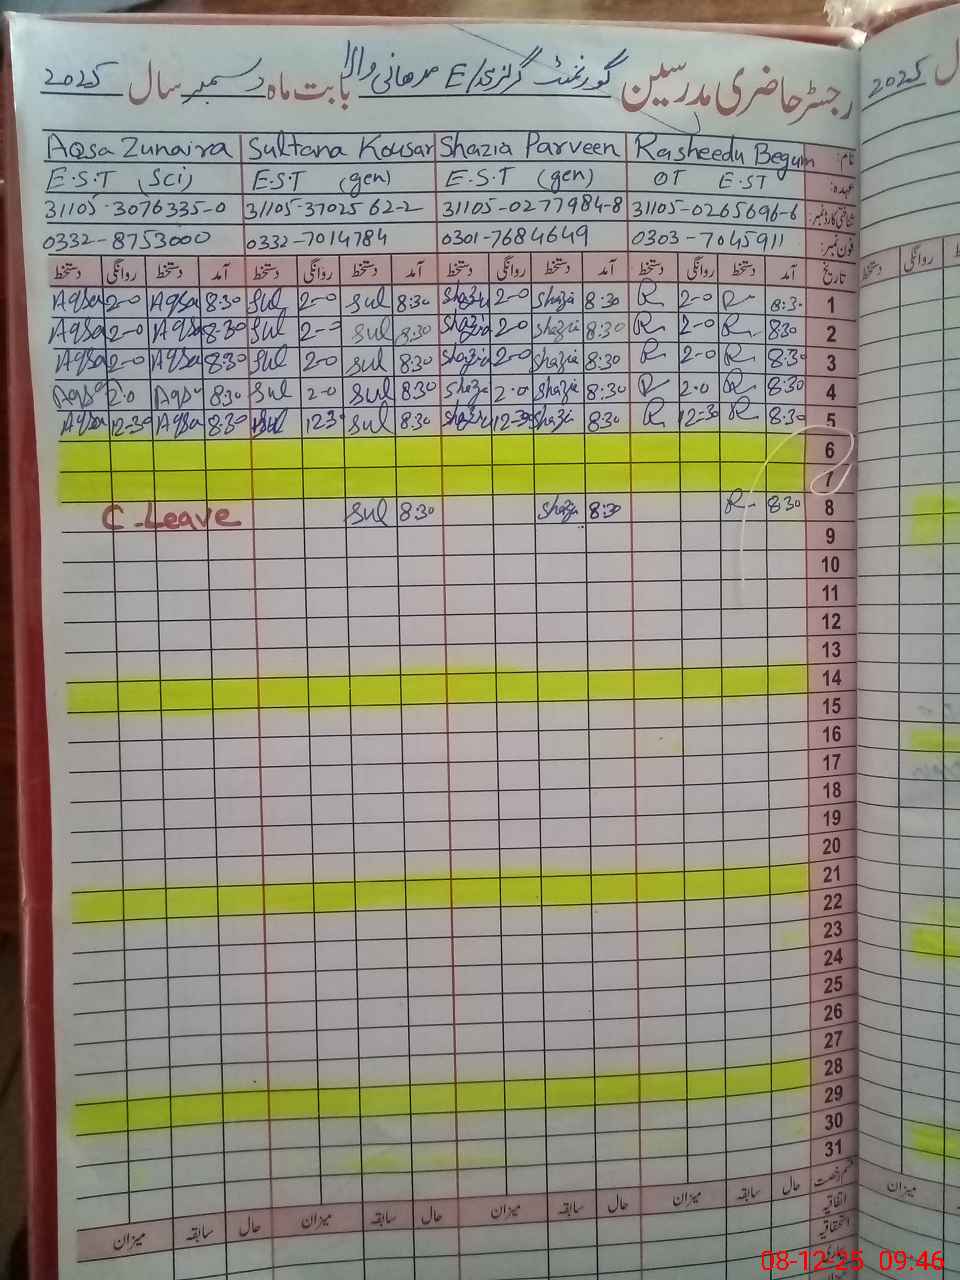 رجسٹر حاضری مدرسین گورنمنٹ گرلز E/ بابت ماہ دسمبر سال 2025
نام: Rasheedu Begum Shazia Parveen Sultana Kousar Aqsa Zunaira
عہدہ: OT E.ST E.S.T (gen) E.S.T (gen) E.S.T (Sci)
شناختی کارڈ نمبر: 31105-0265696-6 31105-0277984-8 31105-3702562-2 31105-3076335-0
فون نمبر: 0303-7045911 0301-7684649 0332-7014784 0332-8753000
تاریخ آمد دستخط روانگی دستخط آمد دستخط روانگی دستخط آمد دستخط روانگی دستخط آمد دستخط روانگی دستخط
1 8:30 R 2-0 R 8:30 Shazia 2-0 Shazia 8:30 Sul 2-0 Sul 8:30 Aqsa 2-0 Aqsa
2 8:30 R 2-0 R 8:30 Shazia 2-0 Shazia 8:30 Sul 2-0 Sul 8:30 Aqsa 2-0 Aqsa
3 8:30 R 2-0 R 8:30 Shazia 2-0 Shazia 8:30 Sul 2-0 Sul 8:30 Aqsa 2-0 Aqsa
4 8:30 R 2.0 R 8:30 Shazia 2.0 Shazia 8:30 Sul 2.0 Sul 8:30 Aqsa 2.0 Aqsa
5 8:30 R 12-30 R 8:30 Shazia 12-30 Shazia 8:30 Sul 1230 Sul 8:30 Aqsa 12-30 Aqsa
6
7
8 8:30 R 8:30 Shazia 8:30 Sul C-Leave
9
10
11
12
13
14
15
16
17
18
19
20
21
22
23
24
25
26
27
28
29
30
31
قسم رخصت حال سابقہ میزان حال سابقہ میزان حال سابقہ میزان حال سابقہ میزان
اتفاقیہ
استحقاقیہ
2025
روانگی دستخط
میزان
08-12-25 09:46